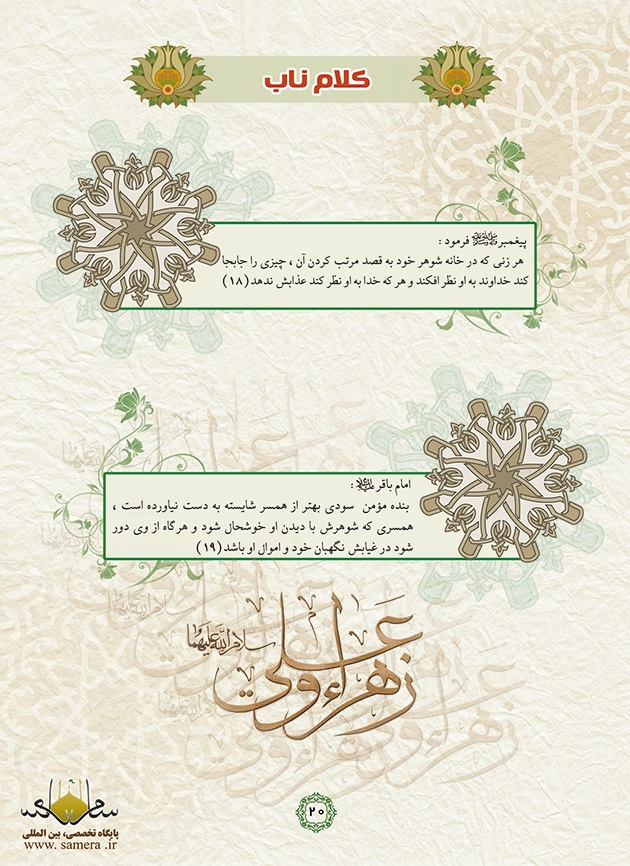 کلام ناب
پیغمبر ﷺ فرمود :
هر زنی که در خانه شوهر خود به قصد مرتب کردن آن ، چیزی را جابجا
کند خداوند به او نظر افکند و هر که خدا به او نظر کند عذابش ندهد (۱۸)
امام باقر علیه السلام :
بنده مؤمن سودی بهتر از همسر شایسته به دست نیاورده است ،
همسری که شوهرش با دیدن او خوشحال شود و هرگاه از وی دور
شود در غیابش نگهبان خود و اموال او باشد (۱۹)
علی و زهراء سلام الله علیهما
۲۰
سامرا
پایگاه تخصصی، بین المللی
www. samera .ir